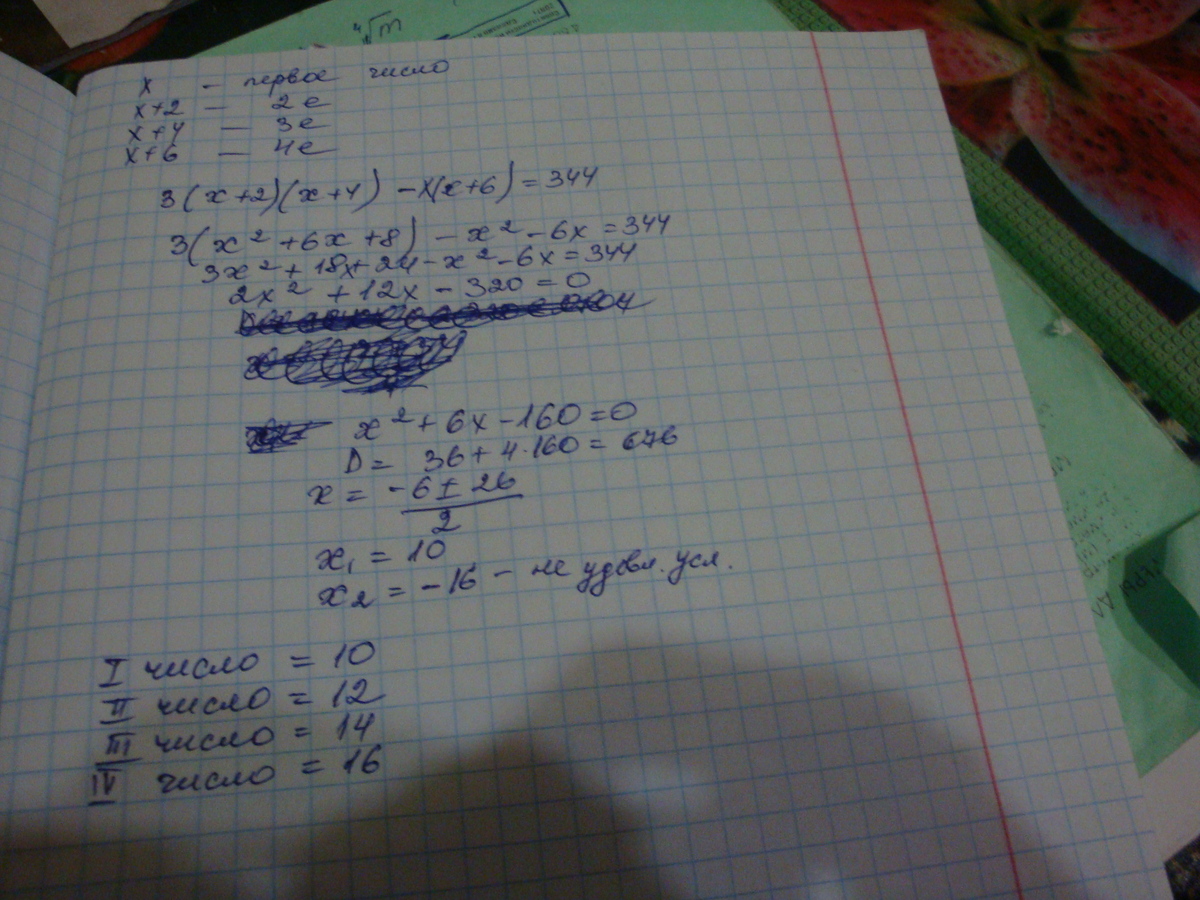 ⁴√m
x - первое число
x+2 - 2е
x+4 - 3е
x+6 - 4е
3(x+2)(x+4) - x(x+6) = 344
3(x² + 6x + 8) - x² - 6x = 344
3x² + 18x + 24 - x² - 6x = 344
2x² + 12x - 320 = 0
x² + 6x - 160 = 0
D = 36 + 4·160 = 676
x = (-6 ± 26)/2
x₁ = 10
x₂ = -16 - не удовл. усл.
I число = 10
II число = 12
III число = 14
IV число = 16